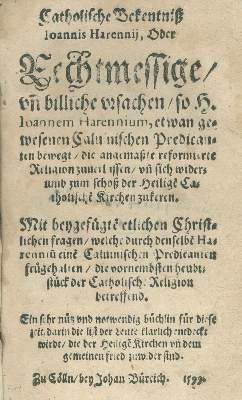 Catholische Bekentniß
Ioannis Harennij, Oder
Rechtmessige/
vñ billiche vrsachen/ so H.
Ioannem Harennium, etwan ge-
wesenen Caluinischen Predican-
ten bewegt/ die anatmaßte reformirte
Religion zuuerlassen/ vñ sich wider-
umb zum schoß der Heiligē Ca-
tholischē Kirchen zukeren.
Mit beygefügtē etlichen Christ-
lichen fragen/ welche durch denselbē Ha-
rennium einē Caluinischen Predicanten
fürgehalten/ die vornembsten heubt-
stück der Catholisch. Religion
betreffend.
Ein sehr nütz vnd notwendig büchlin für diese
zeit, darin die list der Leute klarlich entdeckt
wirdt/ die der Heiligē Kirchen vñ dem
gemeinen fried zuwider sind.
Zu Cölln/ bey Johan Bürcich. 1599.